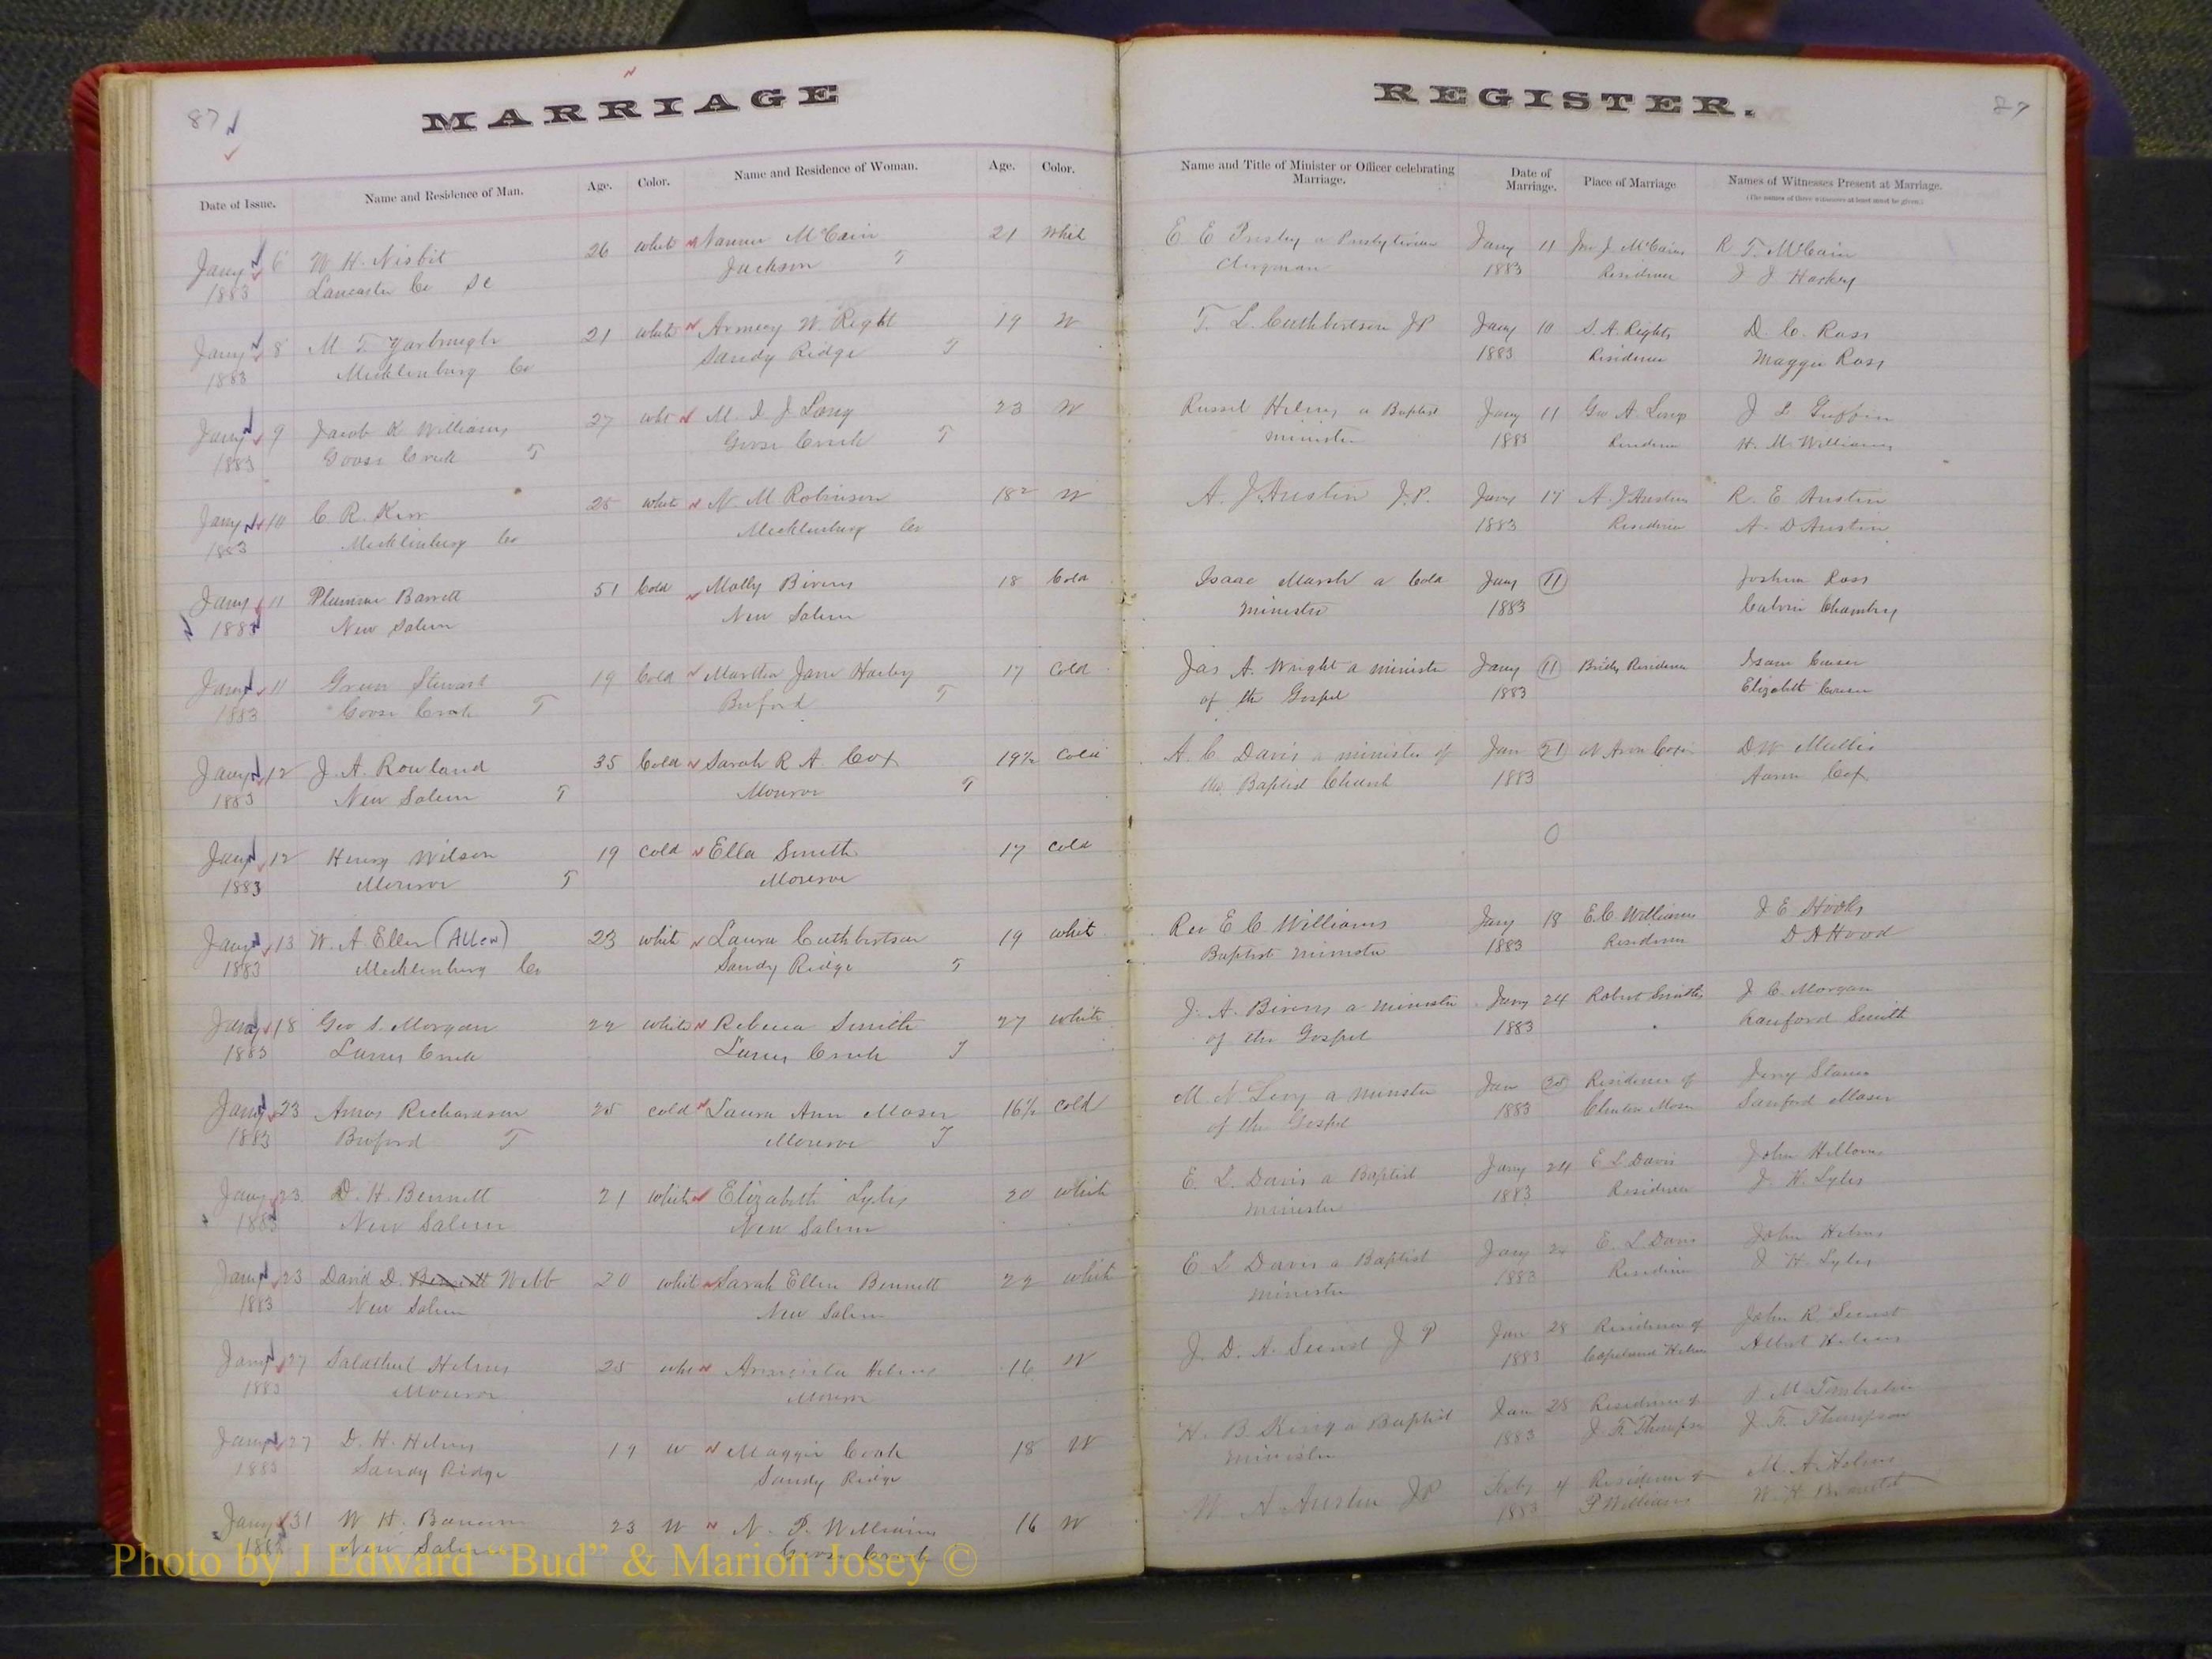 87
MARRIAGE
Date of Issue. Name and Residence of Man. Age. Color. Name and Residence of Woman. Age. Color.
Jany 6 W. H. Nisbit 26 white Nannie McCain 21 Whit
1883 Lancaster Co SC Jackson T
Jany 8 M. T. Yarbrough 21 white W. Right 19 W
1883 Mecklenburg Co Sandy Ridge T
Jany 9 Jacob K Williams 27 whit M. I. J Long 23 W
1883 Goose Creek T Goose Creek T
Jany 10 C. R. Kerr 25 white N. M Robinson 18 W
1883 Mecklenburg Co Mecklenburg Co
Jany 11 Barrett 51 Cold Molly Bivens 18 Cold
1883 New Salem New Salem
Jany 11 Green Stewart 19 Cold Martha Jane 17 Cold
1883 Goose Creek T Buford T
Jany 12 J. A. Rowland 35 Cold Sarah R A Cox 19½ Cold
1883 New Salem T Monroe T
Jany 12 Henry Wilson 19 cold Ella Smith 17 cold
1883 Monroe T Monroe
Jany 13 W. A Ellen (Allen) 23 whit Laura Cuthbertson 19 whit
1883 Mecklenburg Co Sandy Ridge T
Jany 18 Geo S. Morgan 22 white Rebecca Smith 27 white
1883 Lanes Creek Lanes Creek T
Jany 23 Amos Richardson 25 cold Laura Ann Maser 16½ cold
1883 Buford T Monroe T
Jany 23 D. H. Bennett 21 white Elizabeth Lyles 20 white
1883 New Salem New Salem
Jany 23 David D. Bennett Webb 20 whit Sarah Ellen Bennett 22 white
1883 New Salem New Salem
Jany 27 Salathiel Helms 25 white Helms 16 W
1883 Monroe Monroe
Jany 27 D. H. Helms 19 W Maggie Cook 18 W
1883 Sandy Ridge Sandy Ridge
Jany 31 W H. 23 W N. P. Williams 16 W
1883 New Salem Goose Creek
REGISTER.
87
Name and Title of Minister or Officer celebrating Marriage. Date of Marriage. Place of Marriage Names of Witnesses Present at Marriage.
(The names of three witnesses at least must be given.)
E E Presley a Presbyterian Jany 11 J. McCains R T. McCain
Clergyman 1883 Residence J J
T. L. Cuthbertson JP Jany 10 S. A. Rights D. C. Ross
1883 Residence Maggie Ross
Russel Helms a Baptist Jany 11 Geo A. Long J L Griffin
minister 1883 Residence H. M. Williams
A. J Austin J.P. Jany 17 A J Austin R. E Austin
1883 Residence A. D Austin
Isaac Marsh a Cold Jany 11 Joshua Ross
minister 1883 Calvin
Jas A. Wright a minister Jany 11 Brides Residence Isom
of the Gospel 1883 Elizabeth
A. C Davis a minister of Jan 21 D W Mullis
the Baptist Church 1883 Aaron Cox
0
Rev E C Williams Jany 18 E. C. Williams J E Hooks
Baptist minister 1883 Residence D A Hood
J. A. Bivens a minister Jany 24 Robert Smiths J C. Morgan
of the Gospel 1883 Sanford Smith
M. N Levy a minster Jan 30 Residence of Jerry
of the Gospel 1883 Sanford Maser
E. L. Davis a Baptist Jany 24 E L Davis John
minister 1883 Residence J. H. Lyles
E L Davis a Baptist Jany 24 E. L Davis John Helms
minister 1883 Residence J H. Lyles
J. D. A. Secrest J P Jan 28 Residence of John R Secrest
1883 Copeland Helms Albert Helms
H. B. King a Baptist Jan 28 Residence of J M
minister 1883 J. F. Thompson J. F. Thompson
Austin JP Feby 4 Residence of M. A. Helms
1883 P Williams W. H.
Photo by J Edward “Bud” & Marion Josey ©